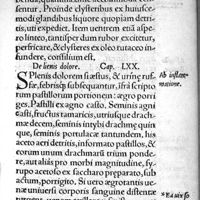 sentur, Proinde clysteribus ex huiusce-
modi glandibus liquore quopiam detri-
tis, uti expediet. Item uentrem etiã aspe-
ri linteo, tantisper dum rubor excitetur,
perfricare, & clysteres ex oleo rutaceo in-
fundere, consilium est.
De lienis dolore. Cap. LXX.
SPlenis dolorem si æstus, & urinę rus-
sæ, febrisq́; subsequantur, isthæc scriptu-
rum pastillorum portionem: ægro porri-
ges. Pastilli ex agno casto. Seminis agni
casti, fructus tamaricis, utriusq; drachmæ
decem, seminis intybi drachmę quin
que, seminis portulacæ tantundem, hos
aceti aeri detritis, informato pastillos, &
eorum unum drachmarũ trium ponde-
re, aut aliàs pro morbi magnitudine, sy-
rupo acetoso ex saccharo præparato, sub
actum, porrigito. Si uero ægrotantis ue-
næ uniuersi corporis sanguine distentæ
Ab inflam-
matione.